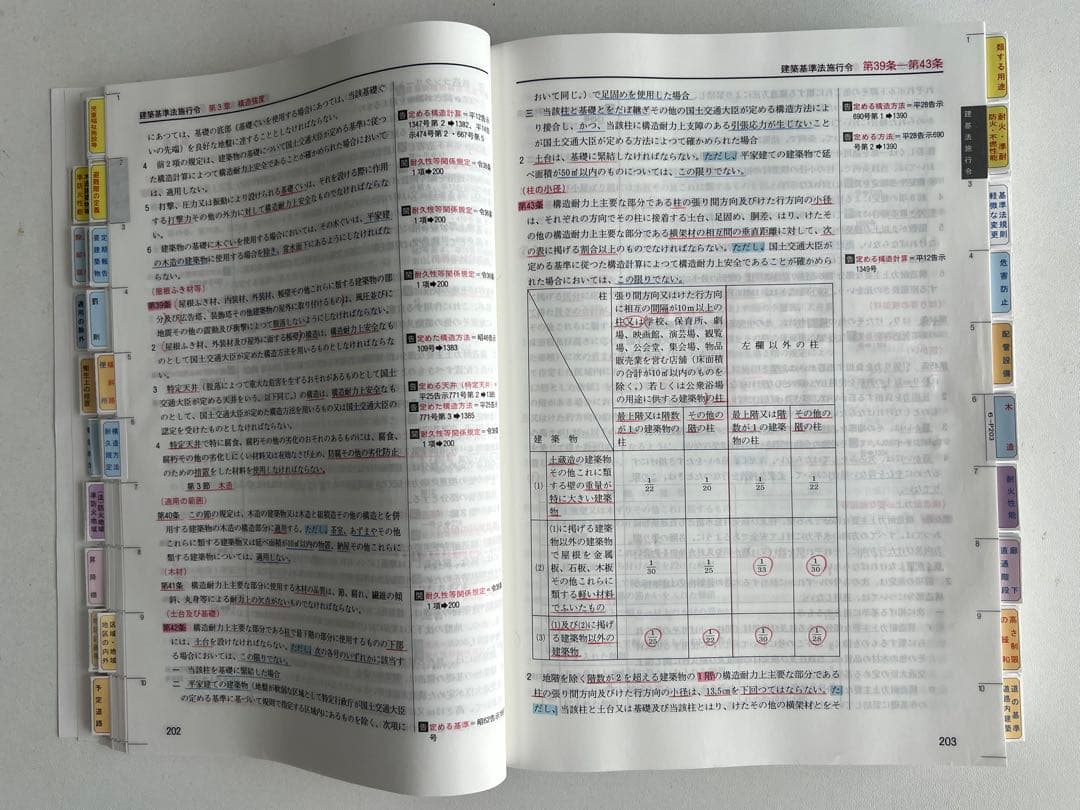 建築基準法施行令 第3章 構造強度
にあつては、基礎の底部(基礎ぐいを使用する場合にあつては、当該基礎ぐ
いの先端)を良好な地盤に達することとしなければならない。
4 前2項の規定は、建築物の基礎について国土交通大臣が定める基準に従つ
た構造計算によつて構造耐力上安全であることが確かめられた場合において
は、適用しない。
5 打撃、圧力又は振動により設けられる基礎ぐいは、それを設ける際に作用
する打撃力その他の外力に対して構造耐力上安全なものでなければならな
い。
6 建築物の基礎に木ぐいを使用する場合においては、その木ぐいは、平家建
の木造の建築物に使用する場合を除き、常水面下にあるようにしなければな
らない。
(屋根ふき材等)
第39条 屋根ふき材、内装材、外装材、帳壁その他これらに類する建築物の部
分及び広告塔、装飾塔その他建築物の屋外に取り付けるものは、風圧並びに
地震その他の震動及び衝撃によつて脱落しないようにしなければならない。
2 屋根ふき材、外装材及び屋外に面する帳壁の構造は、構造耐力上安全なも
のとして国土交通大臣が定めた構造方法を用いるものとしなければならな
い。
3 特定天井(脱落によつて重大な危害を生ずるおそれがあるものとして国土
交通大臣が定める天井をいう。以下同じ。)の構造は、構造耐力上安全なもの
として、国土交通大臣が定めた構造方法を用いるもの又は国土交通大臣の
認定を受けたものとしなければならない。
4 特定天井で特に腐食、腐朽その他の劣化のおそれのあるものには、腐食、
腐朽その他の劣化しにくい材料又は有効なさび止め、防腐その他の劣化防止
のための措置をした材料を使用しなければならない。
第3節 木造
(適用の範囲)
第40条 この節の規定は、木造の建築物又は木造と組積造その他の構造とを併
用する建築物の木造の構造部分に適用する。ただし、茶室、あずまやその他
これらに類する建築物又は延べ面積が10㎡以内の物置、納屋その他これらに
類する建築物については、適用しない。
(木材)
第41条 構造耐力上主要な部分に使用する木材の品質は、節、腐れ、繊維の傾
斜、丸身等による耐力上の欠点がないものでなければならない。
(土台及び基礎)
第42条 構造耐力上主要な部分である柱で最下階の部分に使用するものの下部
には、土台を設けなければならない。ただし、次の各号のいずれかに該当す
る場合においては、この限りでない。
一 当該柱を基礎に緊結した場合
二 平家建ての建築物(地盤が軟弱な区域として特定行政庁が国土交通大臣
の定める基準に基づいて規則で指定する区域内にあるものを除く。次項に
202
告 定める構造計算=平12告示
1347号第2➡1382、
示474号第2・667号第5
関 耐久性等関係規定=令36条
1項➡200
関 耐久性等関係規定=令36条
1項➡200
関 耐久性等関係規定=令36条
1項➡200
告 定めた構造方法=昭46告示
109号➡1383
告 定める天井(特定天井)=
平25告示771号第2➡
告 定めた構造方法=平25告示
771号第3➡1385
関 耐久性等関係規定=令36条
1項➡200
関 耐久性等関係規定=令36条
1項➡200
告 定める基準=昭62告示
号
建築基準法施行令 第39条―第43条
おいて同じ。)で足固めを使用した場合
三 当該柱と基礎とをだぼ継ぎその他の国土交通大臣が定める構造方法によ
り接合し、かつ、当該柱に構造耐力上支障のある引張応力が生じないことが
国土交通大臣が定める方法によつて確かめられた場合
2 土台は、基礎に緊結しなければならない。ただし、平家建ての建築物で延
べ面積が50㎡以内のものについては、この限りでない。
(柱の小径)
第43条 構造耐力上主要な部分である柱の張り間方向及びけた行方向の小径
は、それぞれの方向でその柱に接着する土台、足固め、胴差、はり、けたそ
の他の構造耐力上主要な部分である横架材の相互間の垂直距離に対して、次
の表に掲げる割合以上のものでなければならない。ただし、国土交通大臣が
定める基準に従つた構造計算によつて構造耐力上安全であることが確かめら
れた場合においては、この限りでない。
柱
建築物
張り間方向又はけた行方向
に相互の間隔が10m以上の
柱又は学校、保育所、劇
場、映画館、演芸場、観覧
場、公会堂、集会場、物品
販売業を営む店舗(床面積
の合計が10㎡以内のものを
除く。)若しくは公衆浴場
の用途に供する建築物の柱
左欄以外の柱
最上階又は階数
が1の建築物の
柱
その他の
階の柱
最上階又は階
数が1の建築
物の柱
その他の
階の柱
(1) 土蔵造の建築物
その他これに類
する壁の重量が
特に大きい建築
物
1/22 1/20 1/25 1/22
(2) (1)に掲げる建築
物以外の建築物
で屋根を金属
板、石板、木板
その他これらに
類する軽い材料
でふいたもの
1/30 1/25 1/33 1/30
(3) (1)及び(2)に掲げ
る建築物以外の
建築物
1/25 1/22 1/30 1/28
2 地階を除く階数が2を超える建築物の1階の構造耐力上主要な部分である
柱の張り間方向及びけた行方向の小径は、13.5㎝を下回つてはならない。た
だし、当該柱と土台又は基礎及び当該柱とはり、けたその他の横架材とをそ
203
告 定める構造方法=平28告示
690号第1➡1390
告 定める方法=平28告示690
号第2➡1390
告 定める構造計算=平12告示
1349号
建築基準法施行令
類する用途
耐火・準耐
防火・不燃性能
基準法規則
軽微な変更
危害防止
配管設備
木造
6-P203
耐火性能
廊下
直通階段
高さ制限
の緩和
道の基準
道路内建築
児童福祉施設等
避難階の定義
準防火性能
定期報告
要建築物
罰則
適用の除外
便所
衛生上の措置
構造方法
耐久規定
準防火地域
昇降機
区域・地域
地区の内外
予定道路